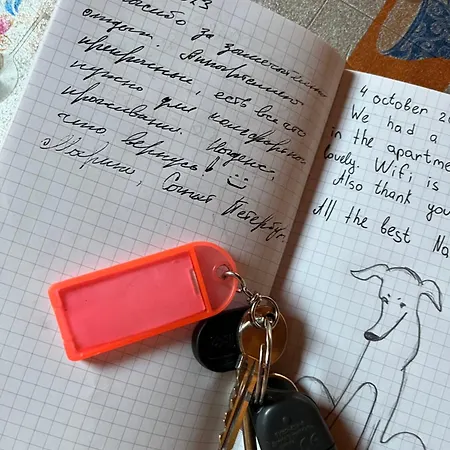 23
Спасибо за замечательный
отдых. Апартаменты
прекрасные, есть все что
нужно для комфортного
проживания. Надеюсь,
что вернусь!
Марина, Санкт Петербург.
4 october 20
We had a
in the apartme
lovely. Wifi is
Also thank you
All the best Na